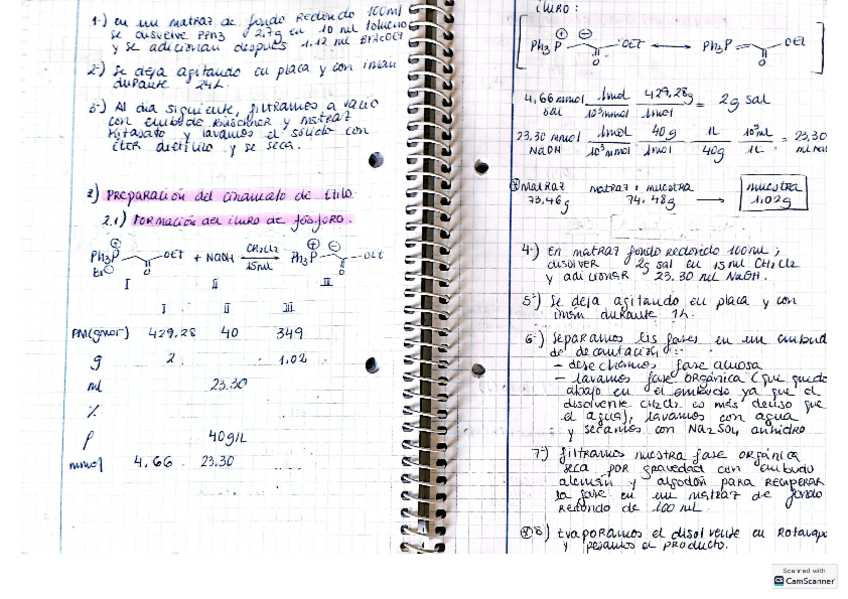 1-) en un matraz de fondo redondo 100ml
se disuelve PPh3 2.7g en 10 ml tolueno
y se adicionan después 1.12 ml BrAcOEt
2-) Se deja agitando en placa y con iman
durante 24h.
3-) Al día siguiente, filtramos a vacío
con embudo Büschner y matraz
Kitasato y lavamos el sólido con
éter dietílico y se seca.
2) PREPARACIÓN del cinamato de etilo
2.1) FORMACIÓN del iluro de fósforo.
Ph3P ⊕ OEt O Br⊖ + NaOH CH2Cl2 15ml Ph3P ⊕ ⊖ OEt O
I II III
I II III
PM(gmol-1) 429.28 40 349
g 2 1.02
ml 23.30
%
ρ 40g/L
mmol 4.66 23.30
iluro:
[Ph3P ⊕ ⊖ OEt O ↔ Ph3P OEt O]
4,66 mmol sal 1mol/10³mmol 429,28g/1mol = 2g sal
23,30 mmol NaOH 1mol/10³mmol 40g/1mol 1L/40g 10³ml/1L = 23,30
⑧ Matraz 73,46g matraz + muestra 74,48g → muestra 1.02g
4-) En matraz fondo redondo 100ml;
disolver 2g sal en 15ml CH2Cl2
y adicionar 23.30 ml NaOH.
5-) Se deja agitando en placa y con
iman durante 1h.
6-) Separamos las fases en un embudo
de decantación:
- desechamos fase acuosa
- lavamos fase orgánica (que quedo
abajo en el embudo ya que el
disolvente CH2Cl2 es más denso que
el agua), lavamos con agua
y secamos con Na2SO4 anhidro
7-) filtramos nuestra fase orgánica
seca por gravedad con embudo
alemán y algodón para recuperar
la fase en un matraz de fondo
redondo de 100 ml.
⑧8-) Evaporamos el disolvente en Rotavapo
y pesamos el producto.
Scanned with
CamScanner